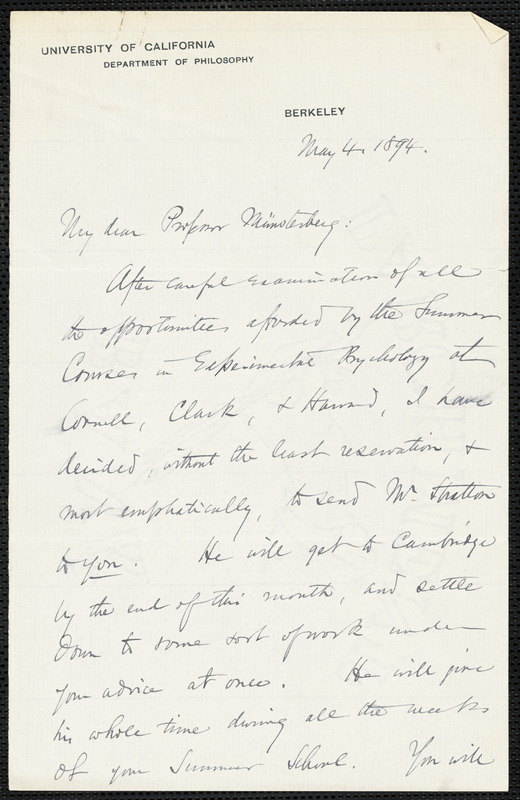 UNIVERSITY OF CALIFORNIA
DEPARTMENT OF PHILOSOPHY
BERKELEY
May 4. 1894.
My dear Professor Münsterberg:
After careful examination of all
the opportunities afforded by the Summer
Courses in Experimental Psychology at
Cornell, Clark, & Harvard, I have
decided, without the least reservation, &
most emphatically, to send Mr. Stratton
to you. He will get to Cambridge
by the end of this month, and settle
down to some sort of work under
your advice at once. He will give
his whole time during all the weeks
of your Summer School. You will